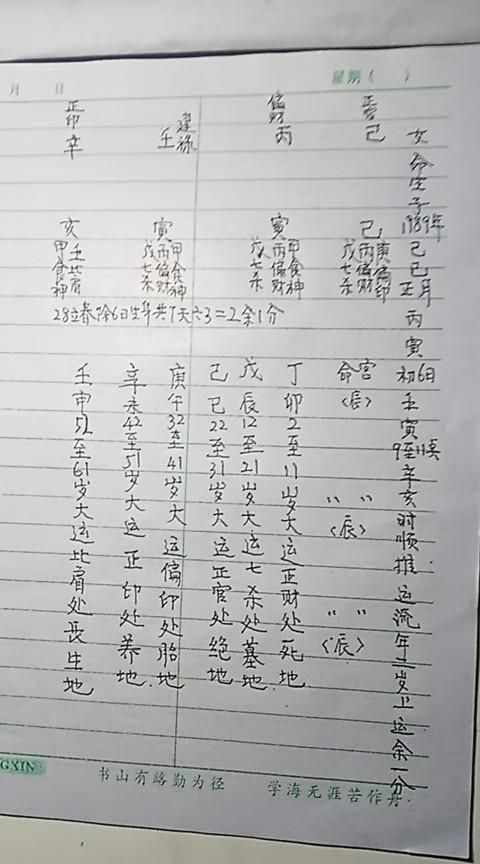 月 日 星期( )
女命生于1989年己巳年正月丙寅初6日壬寅9至11点辛亥时顺推运流年二岁上运余一分
正官 己
偏财 丙
建禄 壬
正印 辛
己 丙庚 戊偏偏 七财印 杀
寅 戊丙甲 七偏食 杀财神
寅 戊丙甲 七偏食 杀财神
亥 甲壬 食比 神肩
28立春除6日生年共7天六3=2余1分
命宫〈辰〉 〃〃〈辰〉 〃〃〈辰〉
丁卯2至11岁大运正财处死地
戊辰12至21岁大运七杀处墓地.
己巳22至31岁大运正官处绝地
庚午32至41岁大运偏印处胎地
辛未42至51岁大运正印处养地.
壬申52至61岁大运比肩处长生地
GXIN 书山有路勤为径 学海无涯苦作舟